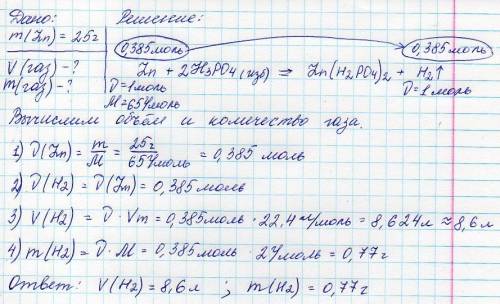 Дано: Решение:
m(Zn) = 25г
V(газ) - ?
m(газ) - ?
0,385моль 0,385моль
Zn + 2H₃PO₄(изб) = Zn(H₂PO₄)₂ + H₂↑
ν=1моль ν=1моль
M=65г/моль
Вычислим объём и количество газа.
1) ν(Zn) = m/M = 25г/65г/моль = 0,385 моль
2) ν(H₂) = ν(Zn) = 0,385моль
3) V(H₂) = ν · Vm = 0,385моль · 22,4 л/моль = 8,624л ≈ 8,6л
4) m(H₂) = ν · M = 0,385моль · 2г/моль = 0,77г
Ответ: V(H₂) = 8,6л ; m(H₂) = 0,77г